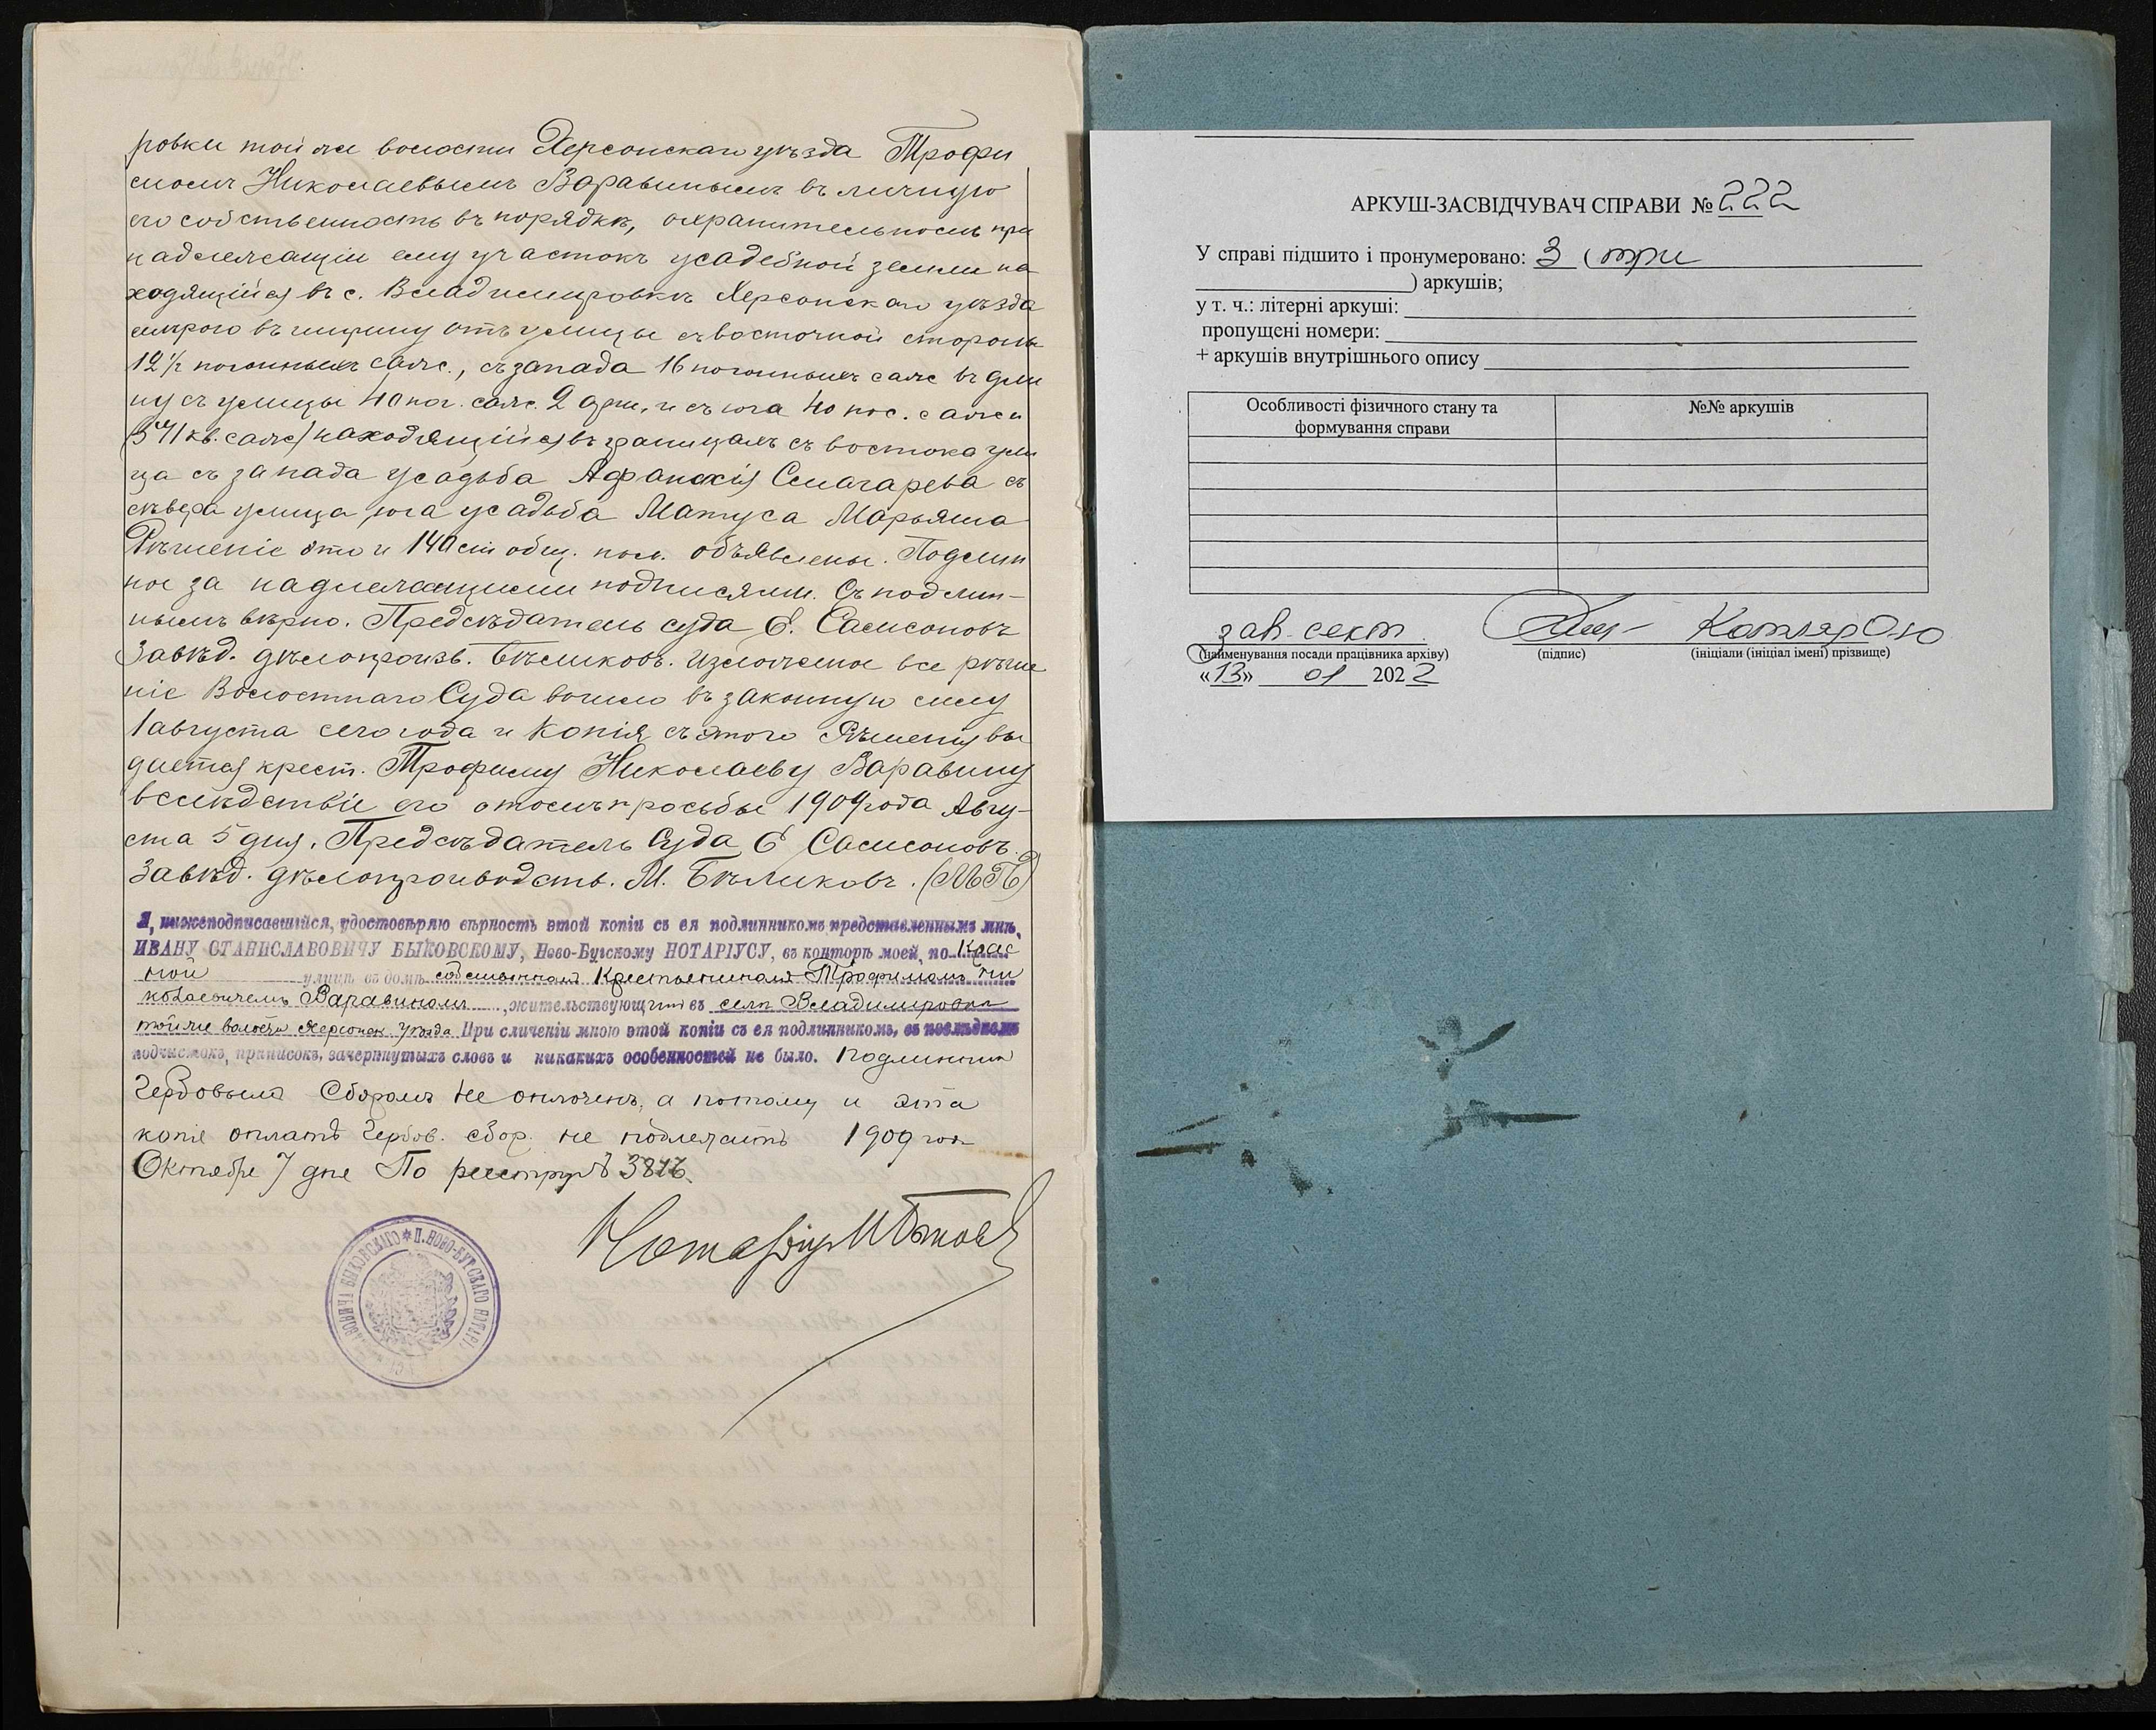 ровки той же волости Херсонскаго уѣзда Трофи
момъ Николаевымъ Варавинымъ въ личную
его собственность въ порядкѣ, охранительномъ при
надлежащiй ему участокъ усадебной земли на
ходящiйся въ с. Владимировкѣ Херсонскаго уѣзда
мѣрою въ ширину отъ улицы съ восточной стороны
12½ погонныхъ саж., съ запада 16 погонныхъ саж въ дли
ну съ улицы 40 пог. саж. 2 арш. и съ юга 40 пог. сажен
(571 кв. саж) находящiйся въ границахъ съ востока ули
ца съ запада усадьба Афанасiя Смагарева съ
сѣвера улица юга усадьба Матуса Марьяша
Рѣшенiе это и 140 ст общ. пол. объявлены. Подлин
ное за надлежащими подписями. Съ подлин-
нымъ вѣрно. Предсѣдатель суда Е. Самсоновъ
Завѣд. дѣлопроизв. Бѣликовъ. Изложенное все рѣше
нiе Волостнаго Суда вошло въ законную силу
1 августа сего года и копiя съ этого Рѣшенiя вы
дается крест. Трофиму Николаеву Варавину
вслѣдствiе его о томъ просьбы 1909 года Авгу-
ста 5 дня. Предсѣдатель Суда Е Самсоновъ.
Завѣд. дѣлопроизводств. М. Бѣликовъ. (М.П.)
Я, нижеподписавшiйся, удостовѣряю вѣрность этой копiи съ ея подлинникомъ представленнымъ мнѣ,
ИВАНУ СТАНИСЛАВОВИЧУ БЫКОВСКОМУ, Ново-Бугскому НОТАРIУСУ, въ конторѣ моей, по Крас
ной улицѣ въ домѣ собственномъ Крестьяниномъ Трофимомъ Ни
колаевичемъ Варавинымъ, жительствующимъ въ селѣ Владимировкѣ
той же волости Херсонск. уѣзда При сличенiи мною этой копiи съ ея подлинникомъ, въ послѣднемъ
подчистокъ, приписокъ, зачеркнутыхъ словъ и никакихъ особенностей не было. Подлинникъ
Гербовымъ Сборомъ не оплоченъ, а потому и эта
копiя оплатѣ Гербов. сбор. не подлежитъ 1909 года
Октября 7 дня По реестру №
Нотарiус И Быковс
П. НОВО-БУГСКАГО НОТАРI. БЫКОВСКАГО
АРКУШ-ЗАСВІДЧУВАЧ СПРАВИ № 222
У справі підшито і пронумеровано: 3 (три
) аркушів;
у т. ч.: літерні аркуші:
пропущені номери:
+ аркушів внутрішнього опису
Особливості фізичного стану та формування справи №№ аркушів
зав. сект. Котляр О.Ю
(найменування посади працівника архіву) (підпис) (ініціали (ініціал імені) прізвище)
«13» 01 2022